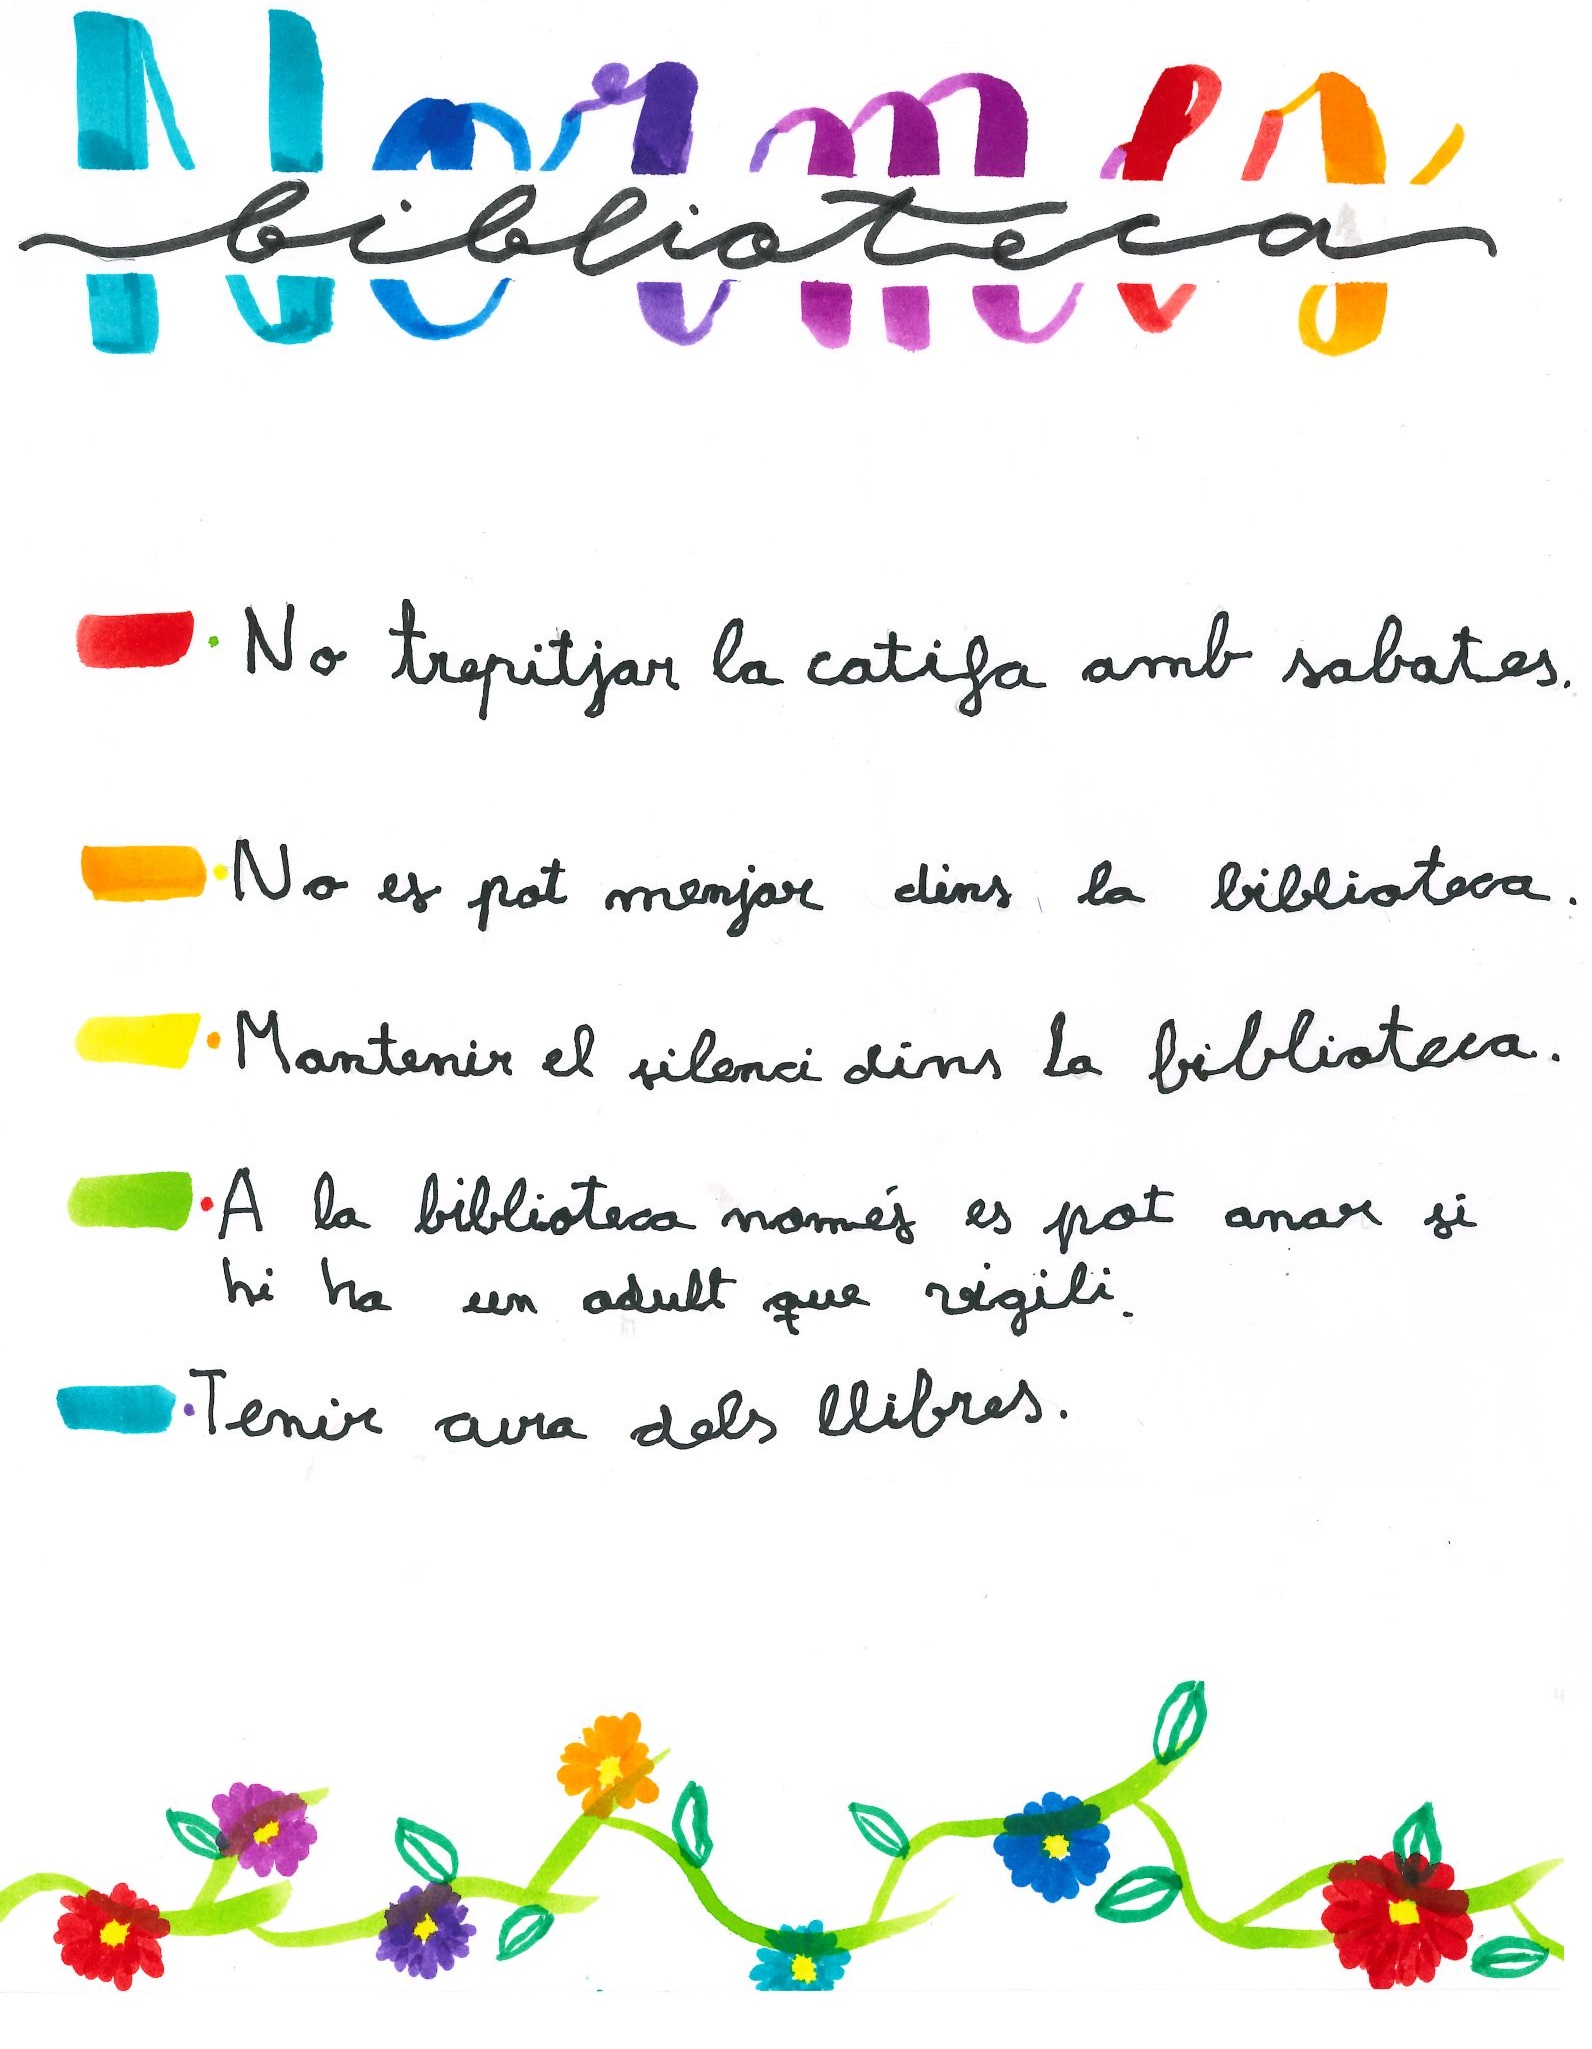 Normes
biblioteca
No trepitjar la catifa amb sabates.
No es pot menjar dins la biblioteca.
Mantenir el silenci dins la biblioteca.
A la biblioteca només es pot anar si
hi ha un adult que vigili.
Tenir cura dels llibres.